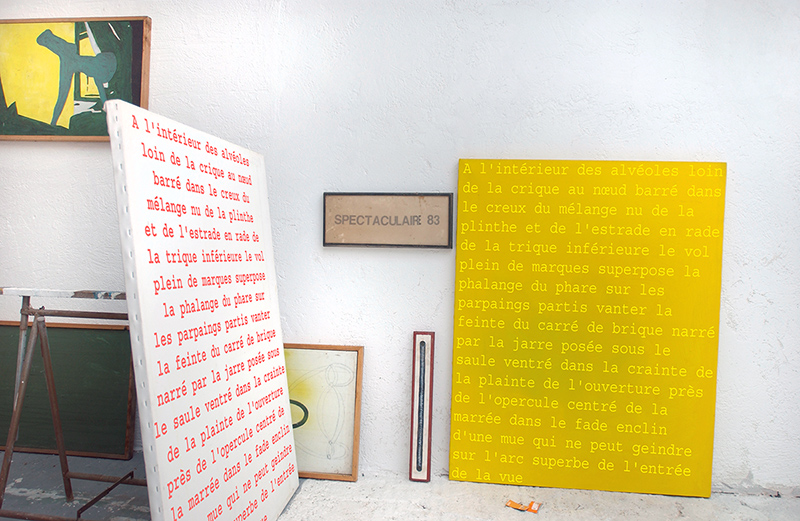 A l'intérieur des alvéoles
loin de la crique au nœud
barré dans le creux du
mélange nu de la plinthe
et de l'estrade en rade de
la trique inférieure le vol
plein de marques superpose
la phalange du phare sur
les parpaings partis vanter
la feinte du carré de brique
narré par la jarre posée sous
le saule ventré dans la crainte
de la plainte de l'ouverture
près de l'opercule centré de
la marrée dans le fade enclin
mue qui ne peut geindre
superbe de l'entrée
SPECTACULAIRE 83
A l'intérieur des alvéoles loin
de la crique au nœud barré dans
le creux du mélange nu de la
plinthe et de l'estrade en rade
de la trique inférieure le vol
plein de marques superpose la
phalange du phare sur les
parpaings partis vanter la
feinte du carré de brique narré
par la jarre posée sous le
saule ventré dans la crainte de
la plainte de l'ouverture près
de l'opercule centré de la
marrée dans le fade enclin
d'une mue qui ne peut geindre
sur l'arc superbe de l'entrée
de la vue